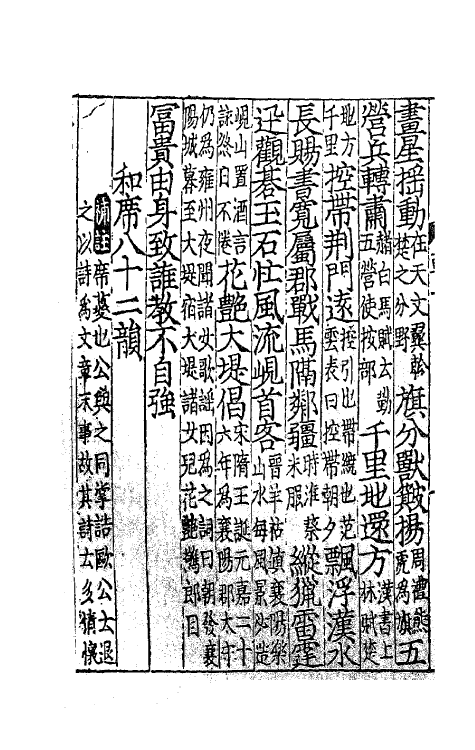 畫星揺動在天文翼軫楚之分野旗分獸簸揚周禮熊虎為旗五
營兵轉肅赭白馬賦云勒五營使按部千里地還方漢書上林賦楚
地方千里控帶荊門遠控引也帶繞也范雲表曰控帶朝夕飄浮漢水
長賜書寬屬郡戰馬隔鄰疆時淮蔡未服縱獵雷霆
迅觀碁玉石忙風流峴首客晉羊祜鎮襄陽樂山水每風景必造
峴山置酒言詠終日不倦花艷大堤倡宋隋王誕元嘉二十六年為襄陽郡太守
仍為雍州夜聞諸女歌謡因為之詞曰朝發襄陽城暮至大堤宿大堤諸女兒花艷驚郎目
富貴由身致誰教不自強
和席八十二韻
補註席夔也公與之同掌誥歐公云退之以詩為文章末事故其詩云多情懷